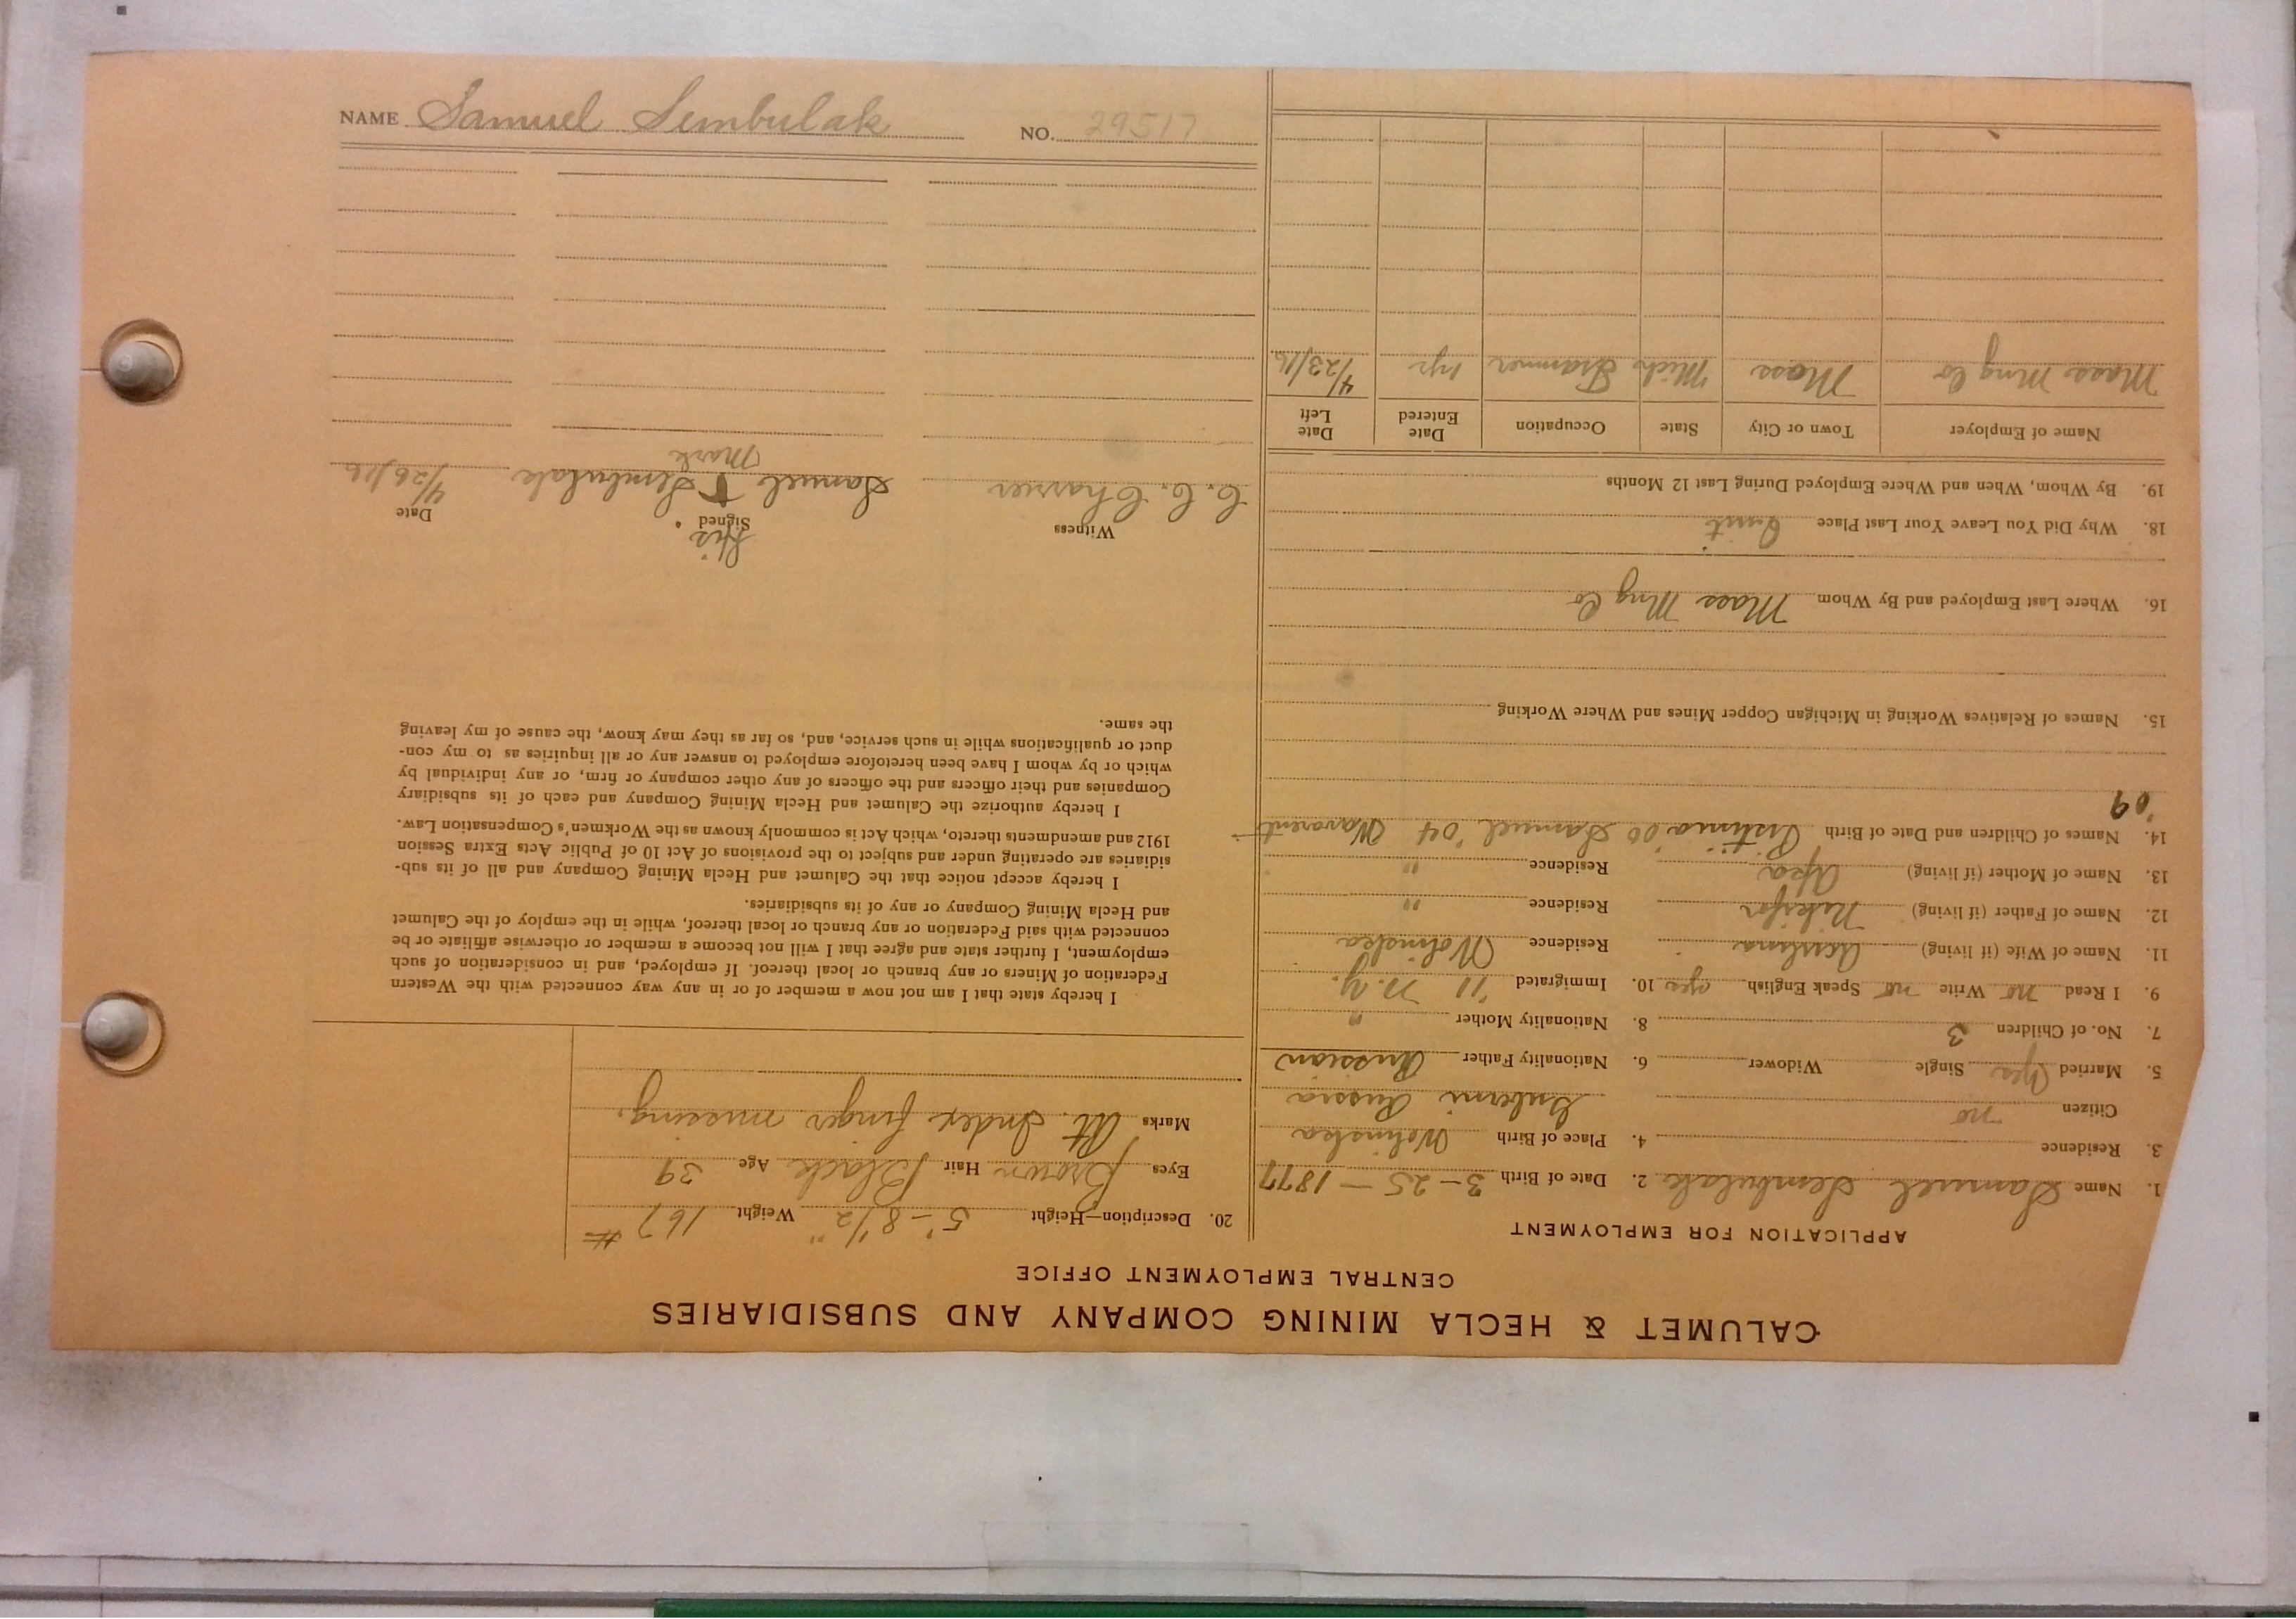 NAME Samuel Sembulak NO. 29517
CALUMET & HECLA MINING COMPANY AND SUBSIDIARIES
CENTRAL EMPLOYMENT OFFICE
APPLICATION FOR EMPLOYMENT
1. Name Samuel Sembulak 2. Date of Birth 3-25-1877
3. Residence 4. Place of Birth Wolinska
Citizen no Guberni Russia
5. Married Yes Single Widower 6. Nationality Father Russian
7. No. of Children 3 8. Nationality Mother "
9. I Read no Write no Speak English yes 10. Immigrated '11 N.Y.
11. Name of Wife (if living) Residence Wolinska
12. Name of Father (if living) Nikifor Residence "
13. Name of Mother (if living) Residence "
14. Names of Children and Date of Birth '00 Samuel '04
'09
15. Names of Relatives Working in Michigan Copper Mines and Where Working
16. Where Last Employed and By Whom Mass Mng Co
18. Why Did You Leave Your Last Place Quit
19. By Whom, When and Where Employed During Last 12 Months
Name of Employer Town or City State Occupation Date Entered Date Left
Mass Mng Co Mass Mich Trammer 1 yr 4/23/16
20. Description—Height 5'-8 1/2" Weight 167 #
Eyes Brown Hair Black Age 39
Marks Rt. Index finger missing.
I hereby state that I am not now a member of or in any way connected with the Western
Federation of Miners or any branch or local thereof. If employed, and in consideration of such
employment, I further state and agree that I will not become a member or otherwise affiliate or be
connected with said Federation or any branch or local thereof, while in the employ of the Calumet
and Hecla Mining Company or any of its subsidiaries.
I hereby accept notice that the Calumet and Hecla Mining Company and all of its sub-
sidiaries are operating under and subject to the provisions of Act 10 of Public Acts Extra Session
1912 and amendments thereto, which Act is commonly known as the Workmen's Compensation Law.
I hereby authorize the Calumet and Hecla Mining Company and each of its subsidiary
Companies and their officers and the officers of any other company or firm, or any individual by
which or by whom I have been heretofore employed to answer any or all inquiries as to my con-
duct or qualifications while in such service, and, so far as they may know, the cause of my leaving
the same.
His
Witness Signed Date
C. C. Charrier Samuel + Sembulak 4/26/16
Mark